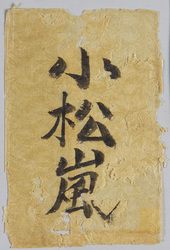 小松嵐